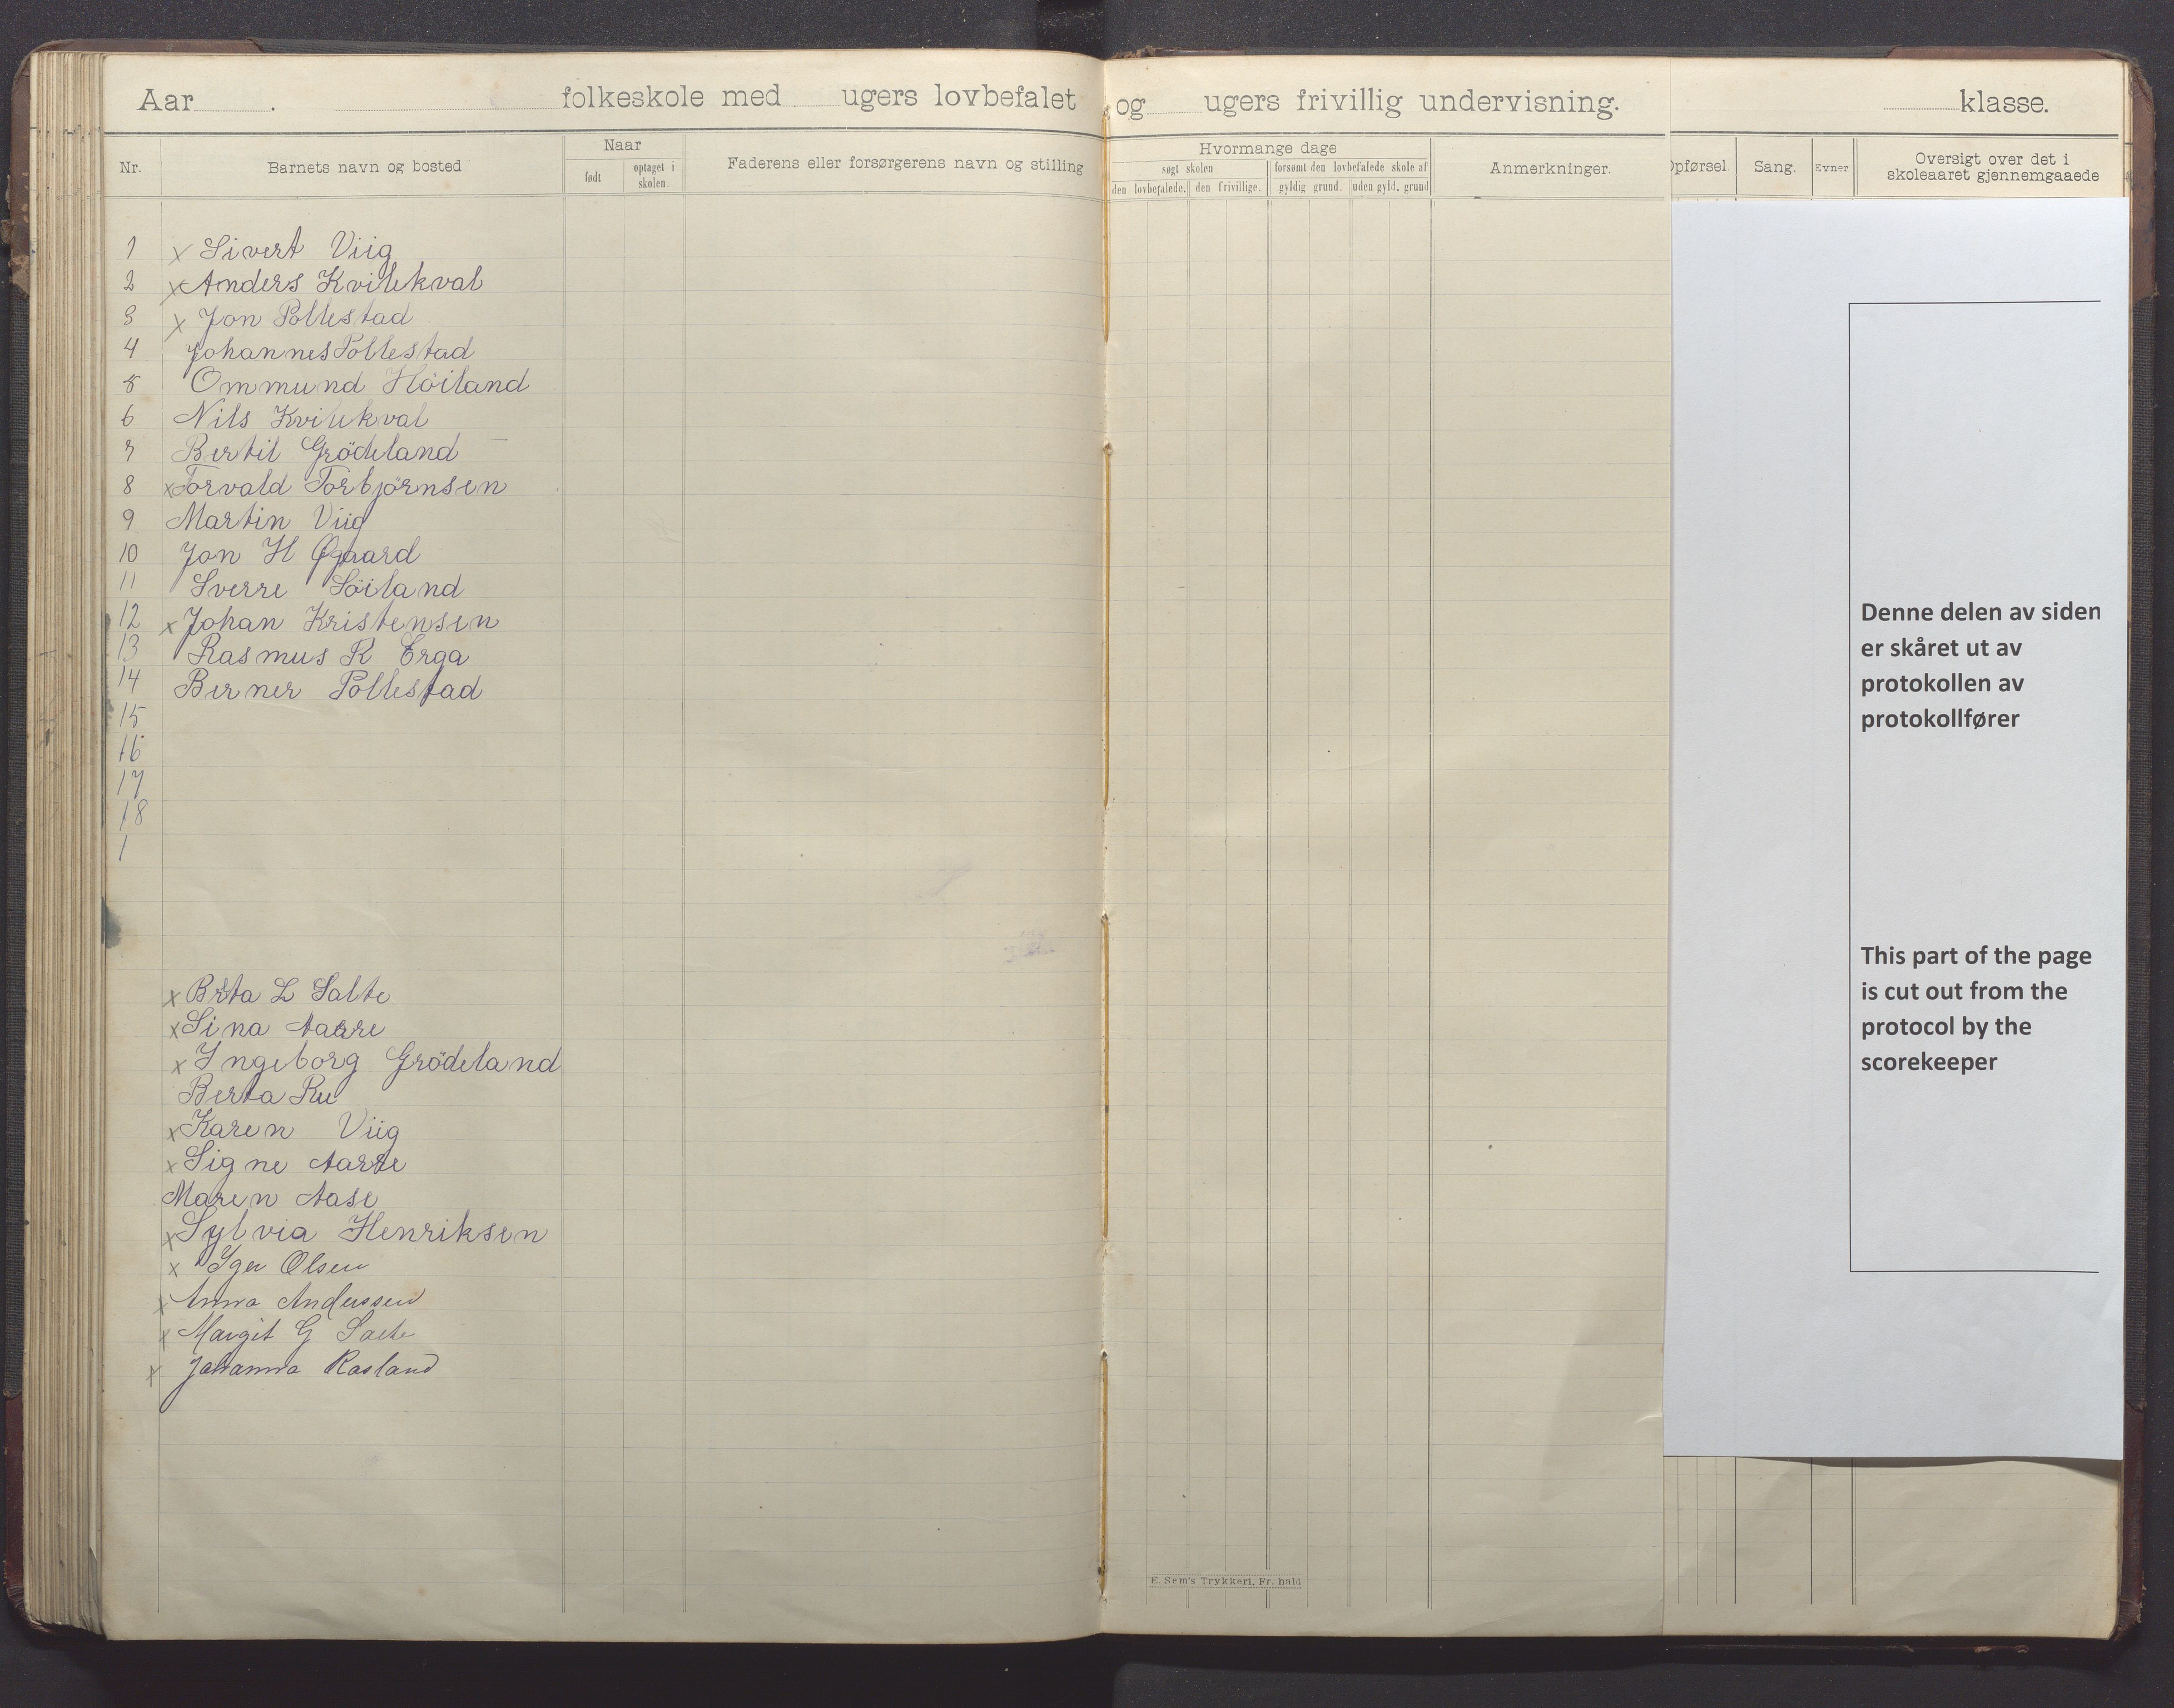 Aar . folkeskole med ugers lovbefalet og ugers frivillig undervisning. klasse.
Nr.
Barnets navn og bosted
Naar
født
optaget i
skolen.
Faderens eller forsørgerens navn og stilling
Hvormange dage
søgt skolen
den lovbefalede. den frivillige.
forsømt den lovbefalede skole af
gyldig grund. uden gyld. grund
Anmerkninger.
Opførsel.
Sang.
Evner
Oversigt over det i
skoleaaret gjennemgaaede
1 x Sivert Viig
2 x Anders Kvilekval
3 x Jon Pollestad
4 Johannes Pollestad
5 Ommund Höiland
6 Nils Kvilekval
7 Bertil Grödeland
8 x Torvald Torbjörnsen
9 Martin Viig
10 Jon H Øgaard
11 Sverre Söiland
12 x Johan Kristensen
13 Rasmus R Erga
14 Berner Pollestad
15
16
17
18
1
x Brta L Salte
x Sina Aarre
x Ingeborg Grödeland
Berta Ru
x Karen Viig
x Signe Aarre
Maren Aase
x Sylvia Henriksen
x Olsen
x Anna Anderssen
x Margit G Salte
x Johanna Rasland
E. Sem's Trykkeri, Fr. hald
Denne delen av siden
er skåret ut av
protokollen av
protokollfører
This part of the page
is cut out from the
protocol by the
scorekeeper